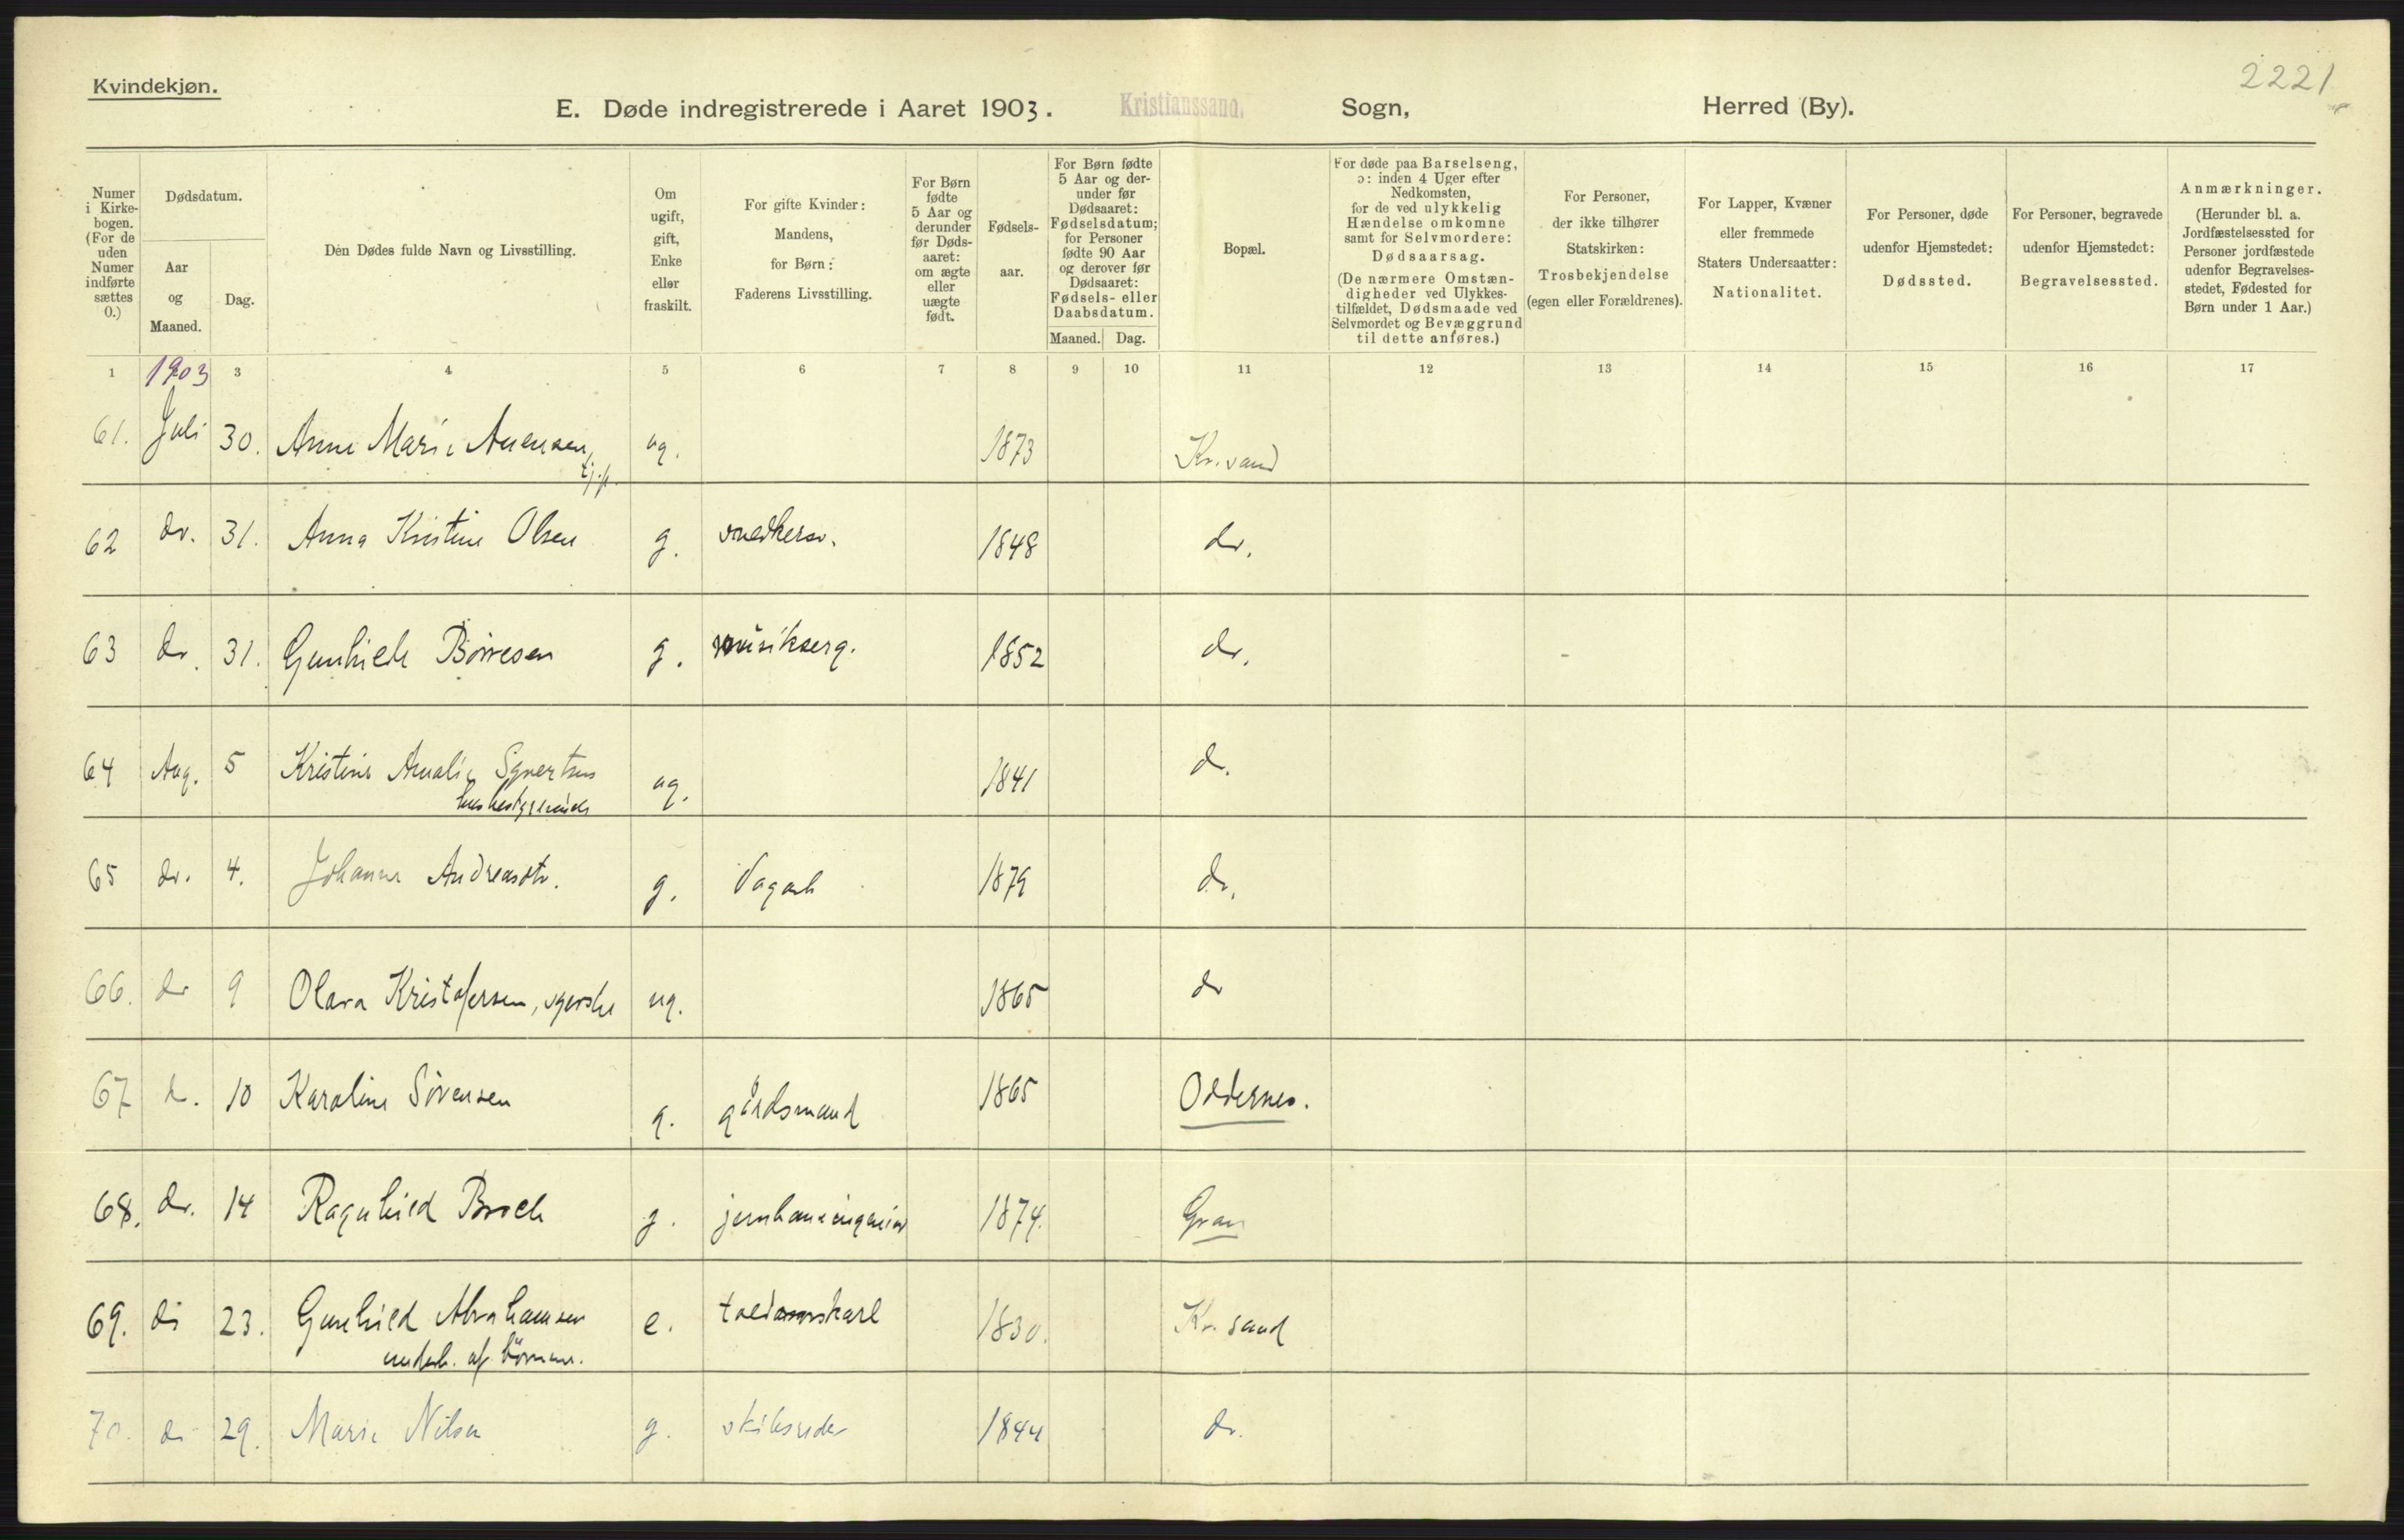 Kvindekjøn.
2221
E. Døde indregistrerede i Aaret 1903. Kristianssand. Sogn, Herred (By).
Numer i Kirke-bogen. (For de uden Numer indførte sættes 0.)
Dødsdatum.
Aar og Maaned.
Dag.
Den Dødes fulde Navn og Livsstilling.
Om ugift, gift, Enke eller fraskilt.
For gifte Kvinder: Mandens, for Børn: Faderens Livsstilling.
For Børn fødte 5 Aar og derunder før Døds-aaret: om ægte eller uægte født.
Fødsels-aar.
For Børn fødte 5 Aar og der-under før Dødsaaret: Fødselsdatum; for Personer fødte 90 Aar og derover før Dødsaaret: Fødsels- eller Daabsdatum.
Maaned. Dag.
Bopæl.
For døde paa Barselseng, ɔ: inden 4 Uger efter Nedkomsten, for de ved ulykkelig Hændelse omkomne samt for Selvmordere: Dødsaarsag. (De nærmere Omstæn-digheder ved Ulykkes-tilfældet, Dødsmaade ved Selvmordet og Bevæggrund til dette anføres.)
For Personer, der ikke tilhører Statskirken: Trosbekjendelse (egen eller Forældrenes).
For Lapper, Kvæner eller fremmede Staters Undersaatter: Nationalitet.
For Personer, døde udenfor Hjemstedet: Dødssted.
For Personer, begravede udenfor Hjemstedet: Begravelsessted.
Anmærkninger. (Herunder bl. a. Jordfæstelsessted for Personer jordfæstede udenfor Begravelses-stedet, Fødested for Børn under 1 Aar.)
1 1903 3 4 5 6 7 8 9 10 11 12 13 14 15 16 17
61. Juli 30. Anne Marie Anensen, ug. 1873 Kr.sand
tj.p.
62 do. 31. Anna Kristine Olsen g. snedkersv. 1848 do.
63 do. 31. Gunhild Börresen g. musikserg. 1852 do.
64 Aug. 5 Kristine Amalie Syvertsen ug. 1841 do.
husbestyrerinde
65 do. 4. Johanne Andreasdtr. g. Dagarb 1879 do.
66. do 9 Olava Kristofersen, syerske ug. 1865 do
67 do. 10 Karoline Sörensen g. gårdsmand 1865 Oddernes.
68. do. 14 Ragnhild Broch g. jernbaneingeniør 1874. Gran
69. do 23. Gunhild Abrahamsen e. 1830. Kr.sand
underh. af börnene.
70. do 29. Marie Nilsen g. skibsreder 1844 do.